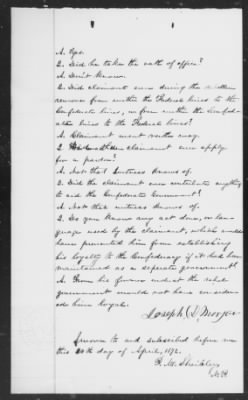 A. Yes.
2. Did he take the oath of office?
A. Don't know.
2. Did claimant ever during the rebellion
remove from within the Federal lines to the
Confederate lines, or from within the Confed-
erate lines to the Federal lines?
A. Claimant went neither way.
2. Did claimant ever apply
for a pardon?
A. Not that witness knows of.
2. Did the claimant ever contribute anything
to aid the Confederate Government?
A. Not that witness knows of.
2. Do you know any act done, or lan-
guage used by the claimant, which would
have prevented him from establishing
his loyalty to the Confederacy if it had been
maintained as a seperate government?
A. From his course as what the rebel
government would not have consider-
ed him loyal.
Joseph
Sworn to and subscribed before me
this 20th day of April, 1872.